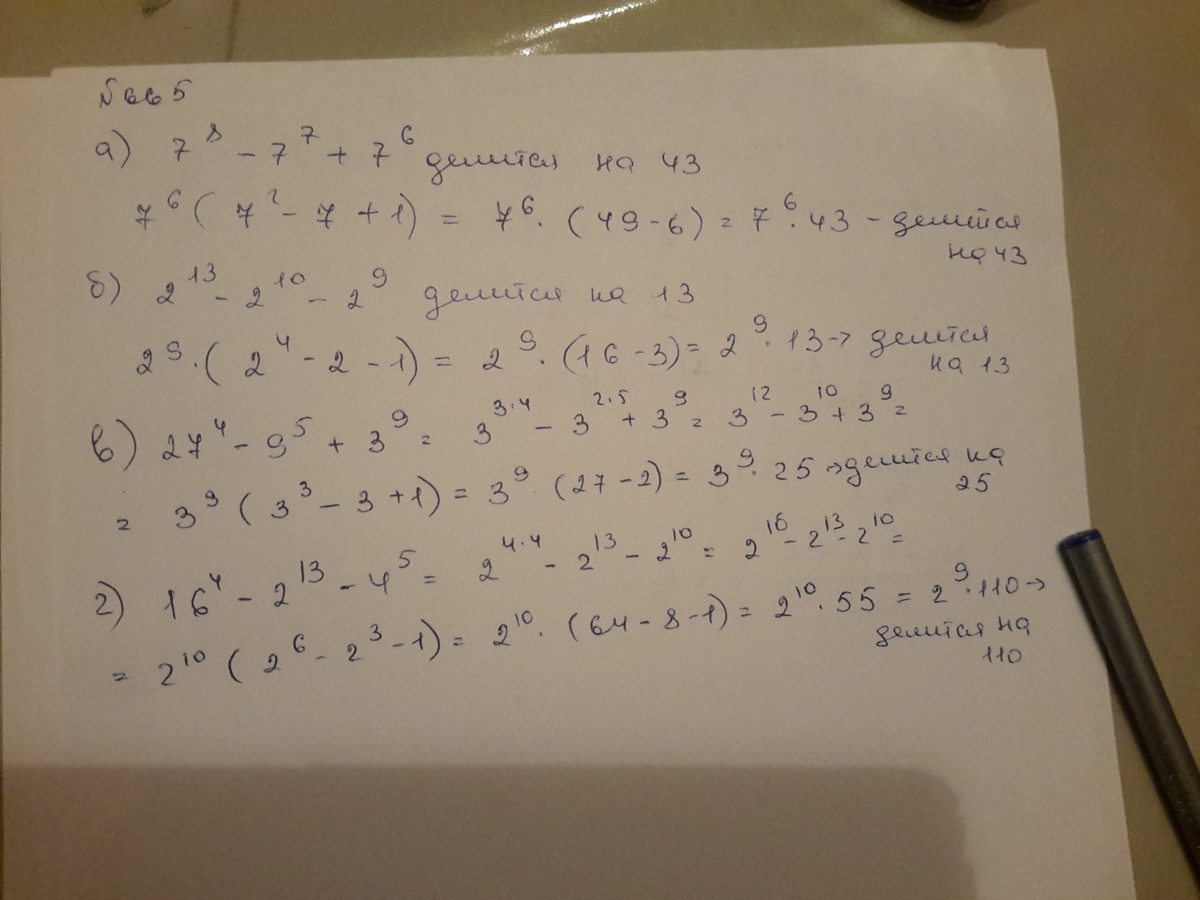 №665
а) 7⁸ - 7⁷ + 7⁶ делится на 43
7⁶ ( 7² - 7 + 1) = 7⁶ · (49 - 6) = 7⁶ · 43 - делится
на 43
б) 2¹³ - 2¹⁰ - 2⁹ делится на 13
2⁹ · ( 2⁴ - 2 - 1) = 2⁹ · (16 - 3) = 2⁹ · 13 → делится
на 13
в) 27⁴ - 9⁵ + 3⁹ = 3³·⁴ - 3²·⁵ + 3⁹ = 3¹² - 3¹⁰ + 3⁹ =
= 3⁹ ( 3³ - 3 + 1) = 3⁹ · (27 - 2) = 3⁹ · 25 → делится на
25
г) 16⁴ - 2¹³ - 4⁵ = 2⁴·⁴ - 2¹³ - 2¹⁰ = 2¹⁶ - 2¹³ - 2¹⁰ =
= 2¹⁰ ( 2⁶ - 2³ - 1) = 2¹⁰ · (64 - 8 - 1) = 2¹⁰ · 55 = 2⁹ · 110 →
делится на
110